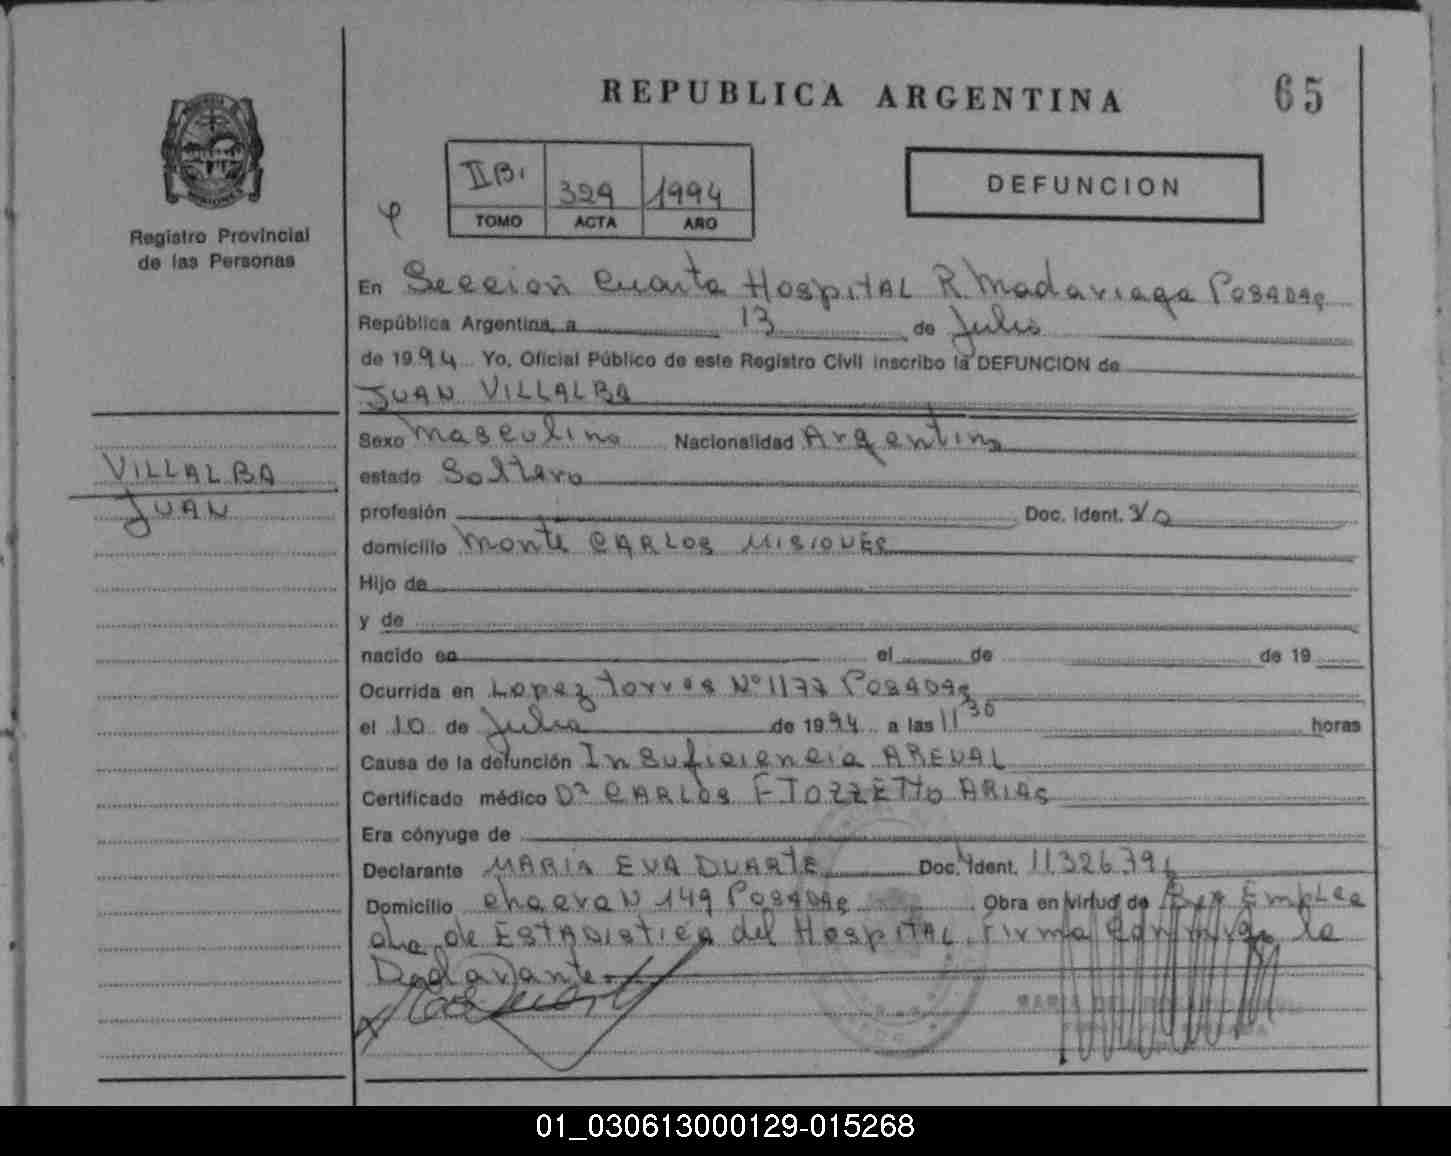 REPUBLICA ARGENTINA
65
II B.
329
1994
TOMO
ACTA
AÑO
DEFUNCION
Registro Provincial
de las Personas
En Seccion Cuarta Hospital R. Madariaga Posadas
República Argentina, a 13 de Julio
de 1994 Yo, Oficial Público de este Registro Civil inscribo la DEFUNCION de
JUAN VILLALBA
Sexo Masculino Nacionalidad Argentina
VILLALBA
JUAN
estado Soltero
profesión Doc. Ident.
domicilio Monte CARLOS MISIONES
Hijo de
y de
nacido en el de de 19
Ocurrida en Lopez Torres Nº 1177 POSADAS
el 10 de Julio de 1994 a las 11 30 horas
Causa de la defunción Insuficiencia ARENAL
Certificado médico Dr CARLOS FIOZZETTO ARIAS
Era cónyuge de
Declarante MARIA EVA DUARTE Doc. Ident. 11.326.794
Domicilio chacra N 149 Posadas Obra en virtud de Ser Emplea
da de Estadistica del Hospital. Firma conmigo la
Declarante
01_030613000129-015268